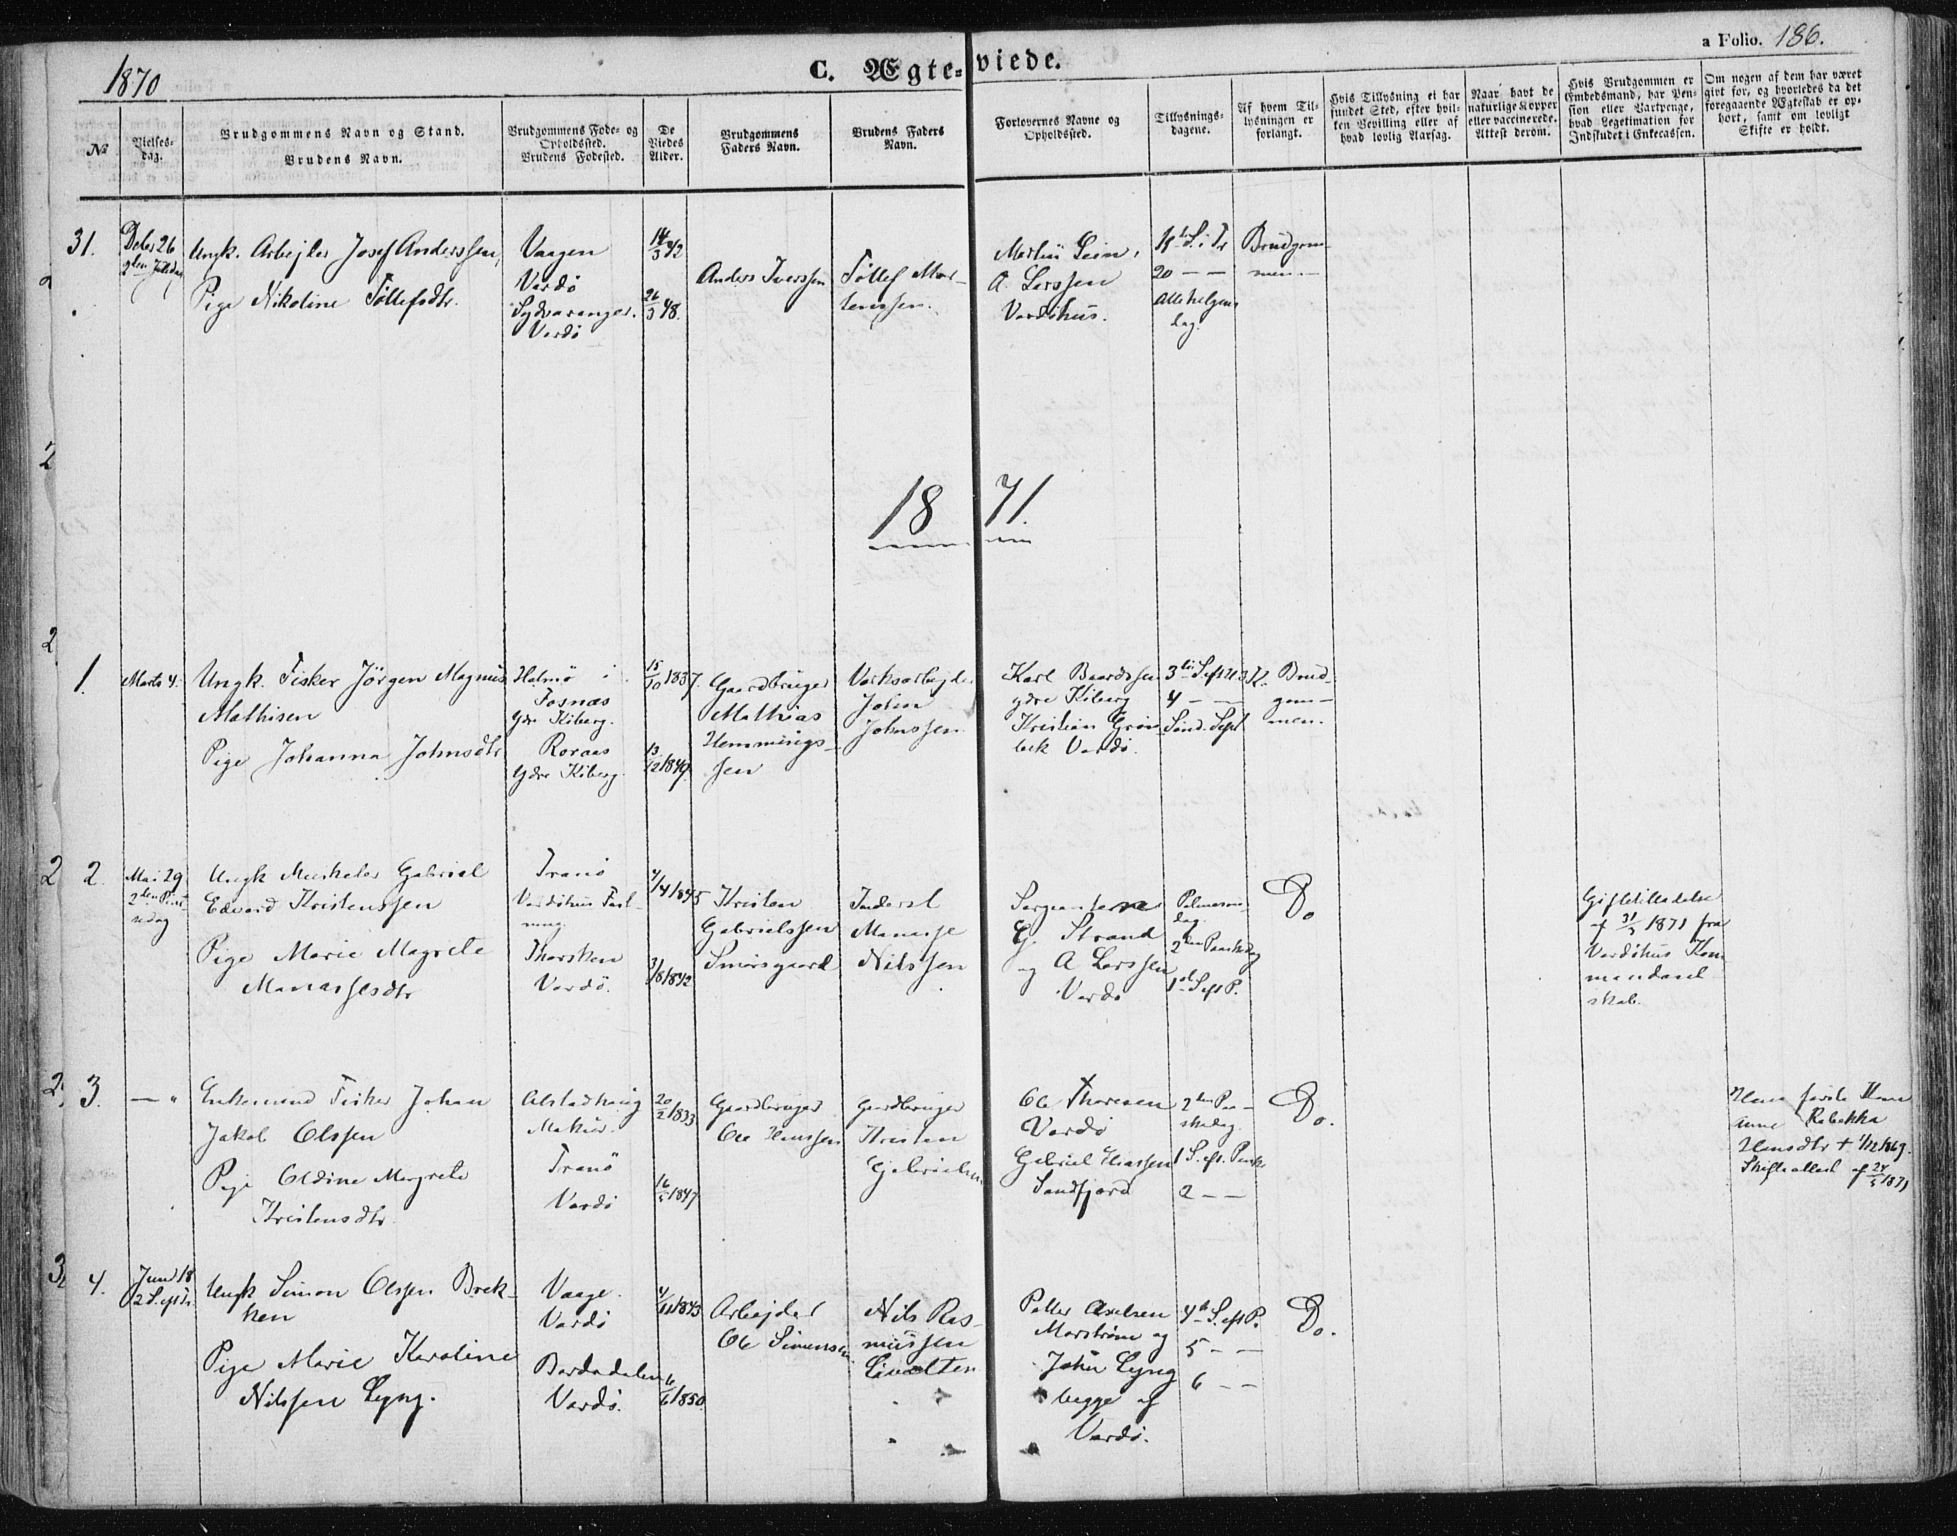 1870
C. Ægteviede.
a Folio. 186.
No
Vielsesdag.
Brudgommens Navn og Stand.
Brudens Navn.
Brudgommens Føde- og
Opholdssted.
Brudens Fødested.
De
Viedes
Alder.
Brudgommens
Faders Navn.
Brudens Faders
Navn.
Forlovernes Navne og
Opholdssted.
Tillysnings-
dagene.
Af hvem Til-
lysningen er
forlangt.
Hvis Tillysning ei har
fundet Sted, efter hvil-
ken Bevilling eller af
hvad lovlig Aarsag.
Naar havt de
naturlige Kopper
eller vaccinerede.
Attest derom.
Hvis Brudgommen er
Embedsmand, har Pen-
sion eller Vartpenge,
hvad Legetimation for
Indskudet i Enkecassen.
Om nogen af dem har været
gift før, og hvorledes da det
foregaaende Ægteskab er op-
hørt, samt om lovligt
Skifte er holdt.
31.
Debr 26
2den Juledag
Ungk. Arbejder Josef Anderssen,
Pige Nikoline Tøllefsdtr.
Vaagen
Vardø
Sydvaranger.
Vardø
14/3 42
26/3 48.
Anders Iverssen
Tøllef Mor-
tenssen.
Martin Lein,
A. Larssen
Vardøhus.
S. i Tr
20 — —
Allehelgens
dag.
Brudgom-
men.
1871.
1.
Marts 4.
Ungk. Fisker Jörgen Magnus
Mathisen
Pige Johanna Johnsdtr
Halmø i
Fosnæs
Ydre Kiberg.
Roraas
Ydre Kiberg.
15/10 1837.
13/12 1849.
Gaardbruger
Mathias
Hemmings-
sen
Verksarbejder
John
Johnssen
Karl Baardssen
ydre Kiberg
Kristian Grön-
bek Vardø.
3die S. eft H 3 K.
4 — —
Sönd. Sept
Brud-
gom-
men.
2.
Mai 29
2den Pint-
sedag
Ungk Muskeler Gabriel
Edvard Kristenssen
Pige Marie Magrete
Manassesdtr
Tranø
Vardøhus Fæst-
ning.
Thorsken
Vardø.
4/4 1845
3/8 1842
Kristen
Gabrielssen
Smörsgaard
Inderst
Manasse
Nilssen
Sergeanterne
G. Strand
og A Larssen
Vardø
Palmeson-
dag.
2den Paaskedag
1ste S. eft P.
Do
Giftetilladelse
af 31/3 1871 fra
Vardøhus Kom
mandant
skab.
3.
— "
Enkemand Fisker Johan
Jakob Olssen
Pige Oldine Margrete
Kristensdtr.
Alstadhaug
Makur.
Tranø
Vardø
20/2 1833
16/5 1847
Gaardbruger
Ole Hanssen
Gaardbruger
Kristen
Gabrielsen
Ole Thoresen
Vardø
Gabriel Hanssen
Sandfjord
2den Paa-
skedag.
1 S. eft. Paaske
2 — —
Do.
Hans første Kone
Anne Rebekka
Hansdtr + 1/12 1869.
Skifteattest af 24/5 1871
4.
Juni 18
2 S. eft Tr.
Ungk Simon Olssen Brek-
ken
Pige Marie Karoline
Nilssen Lyng.
Vaage.
Vardø
Bardodalen
Vardø.
4/11 1843
6/6 1850.
Arbejder
Ole Simensen
Nils Ras-
mussen
Petter Axelsen
Marström og
John Lyng
begge af
Vardø.
4de S. eft P.
5 — —
6 — —
Do.